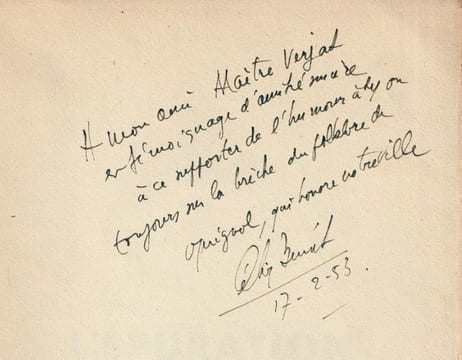 A mon ami Maître Verjat
en témoignage d'amitié sincère
à ce supporter de l'humour à Lyon
toujours sur la brèche du folklore de
guignol, qui honore notre ville
Benoit
17-2-53.